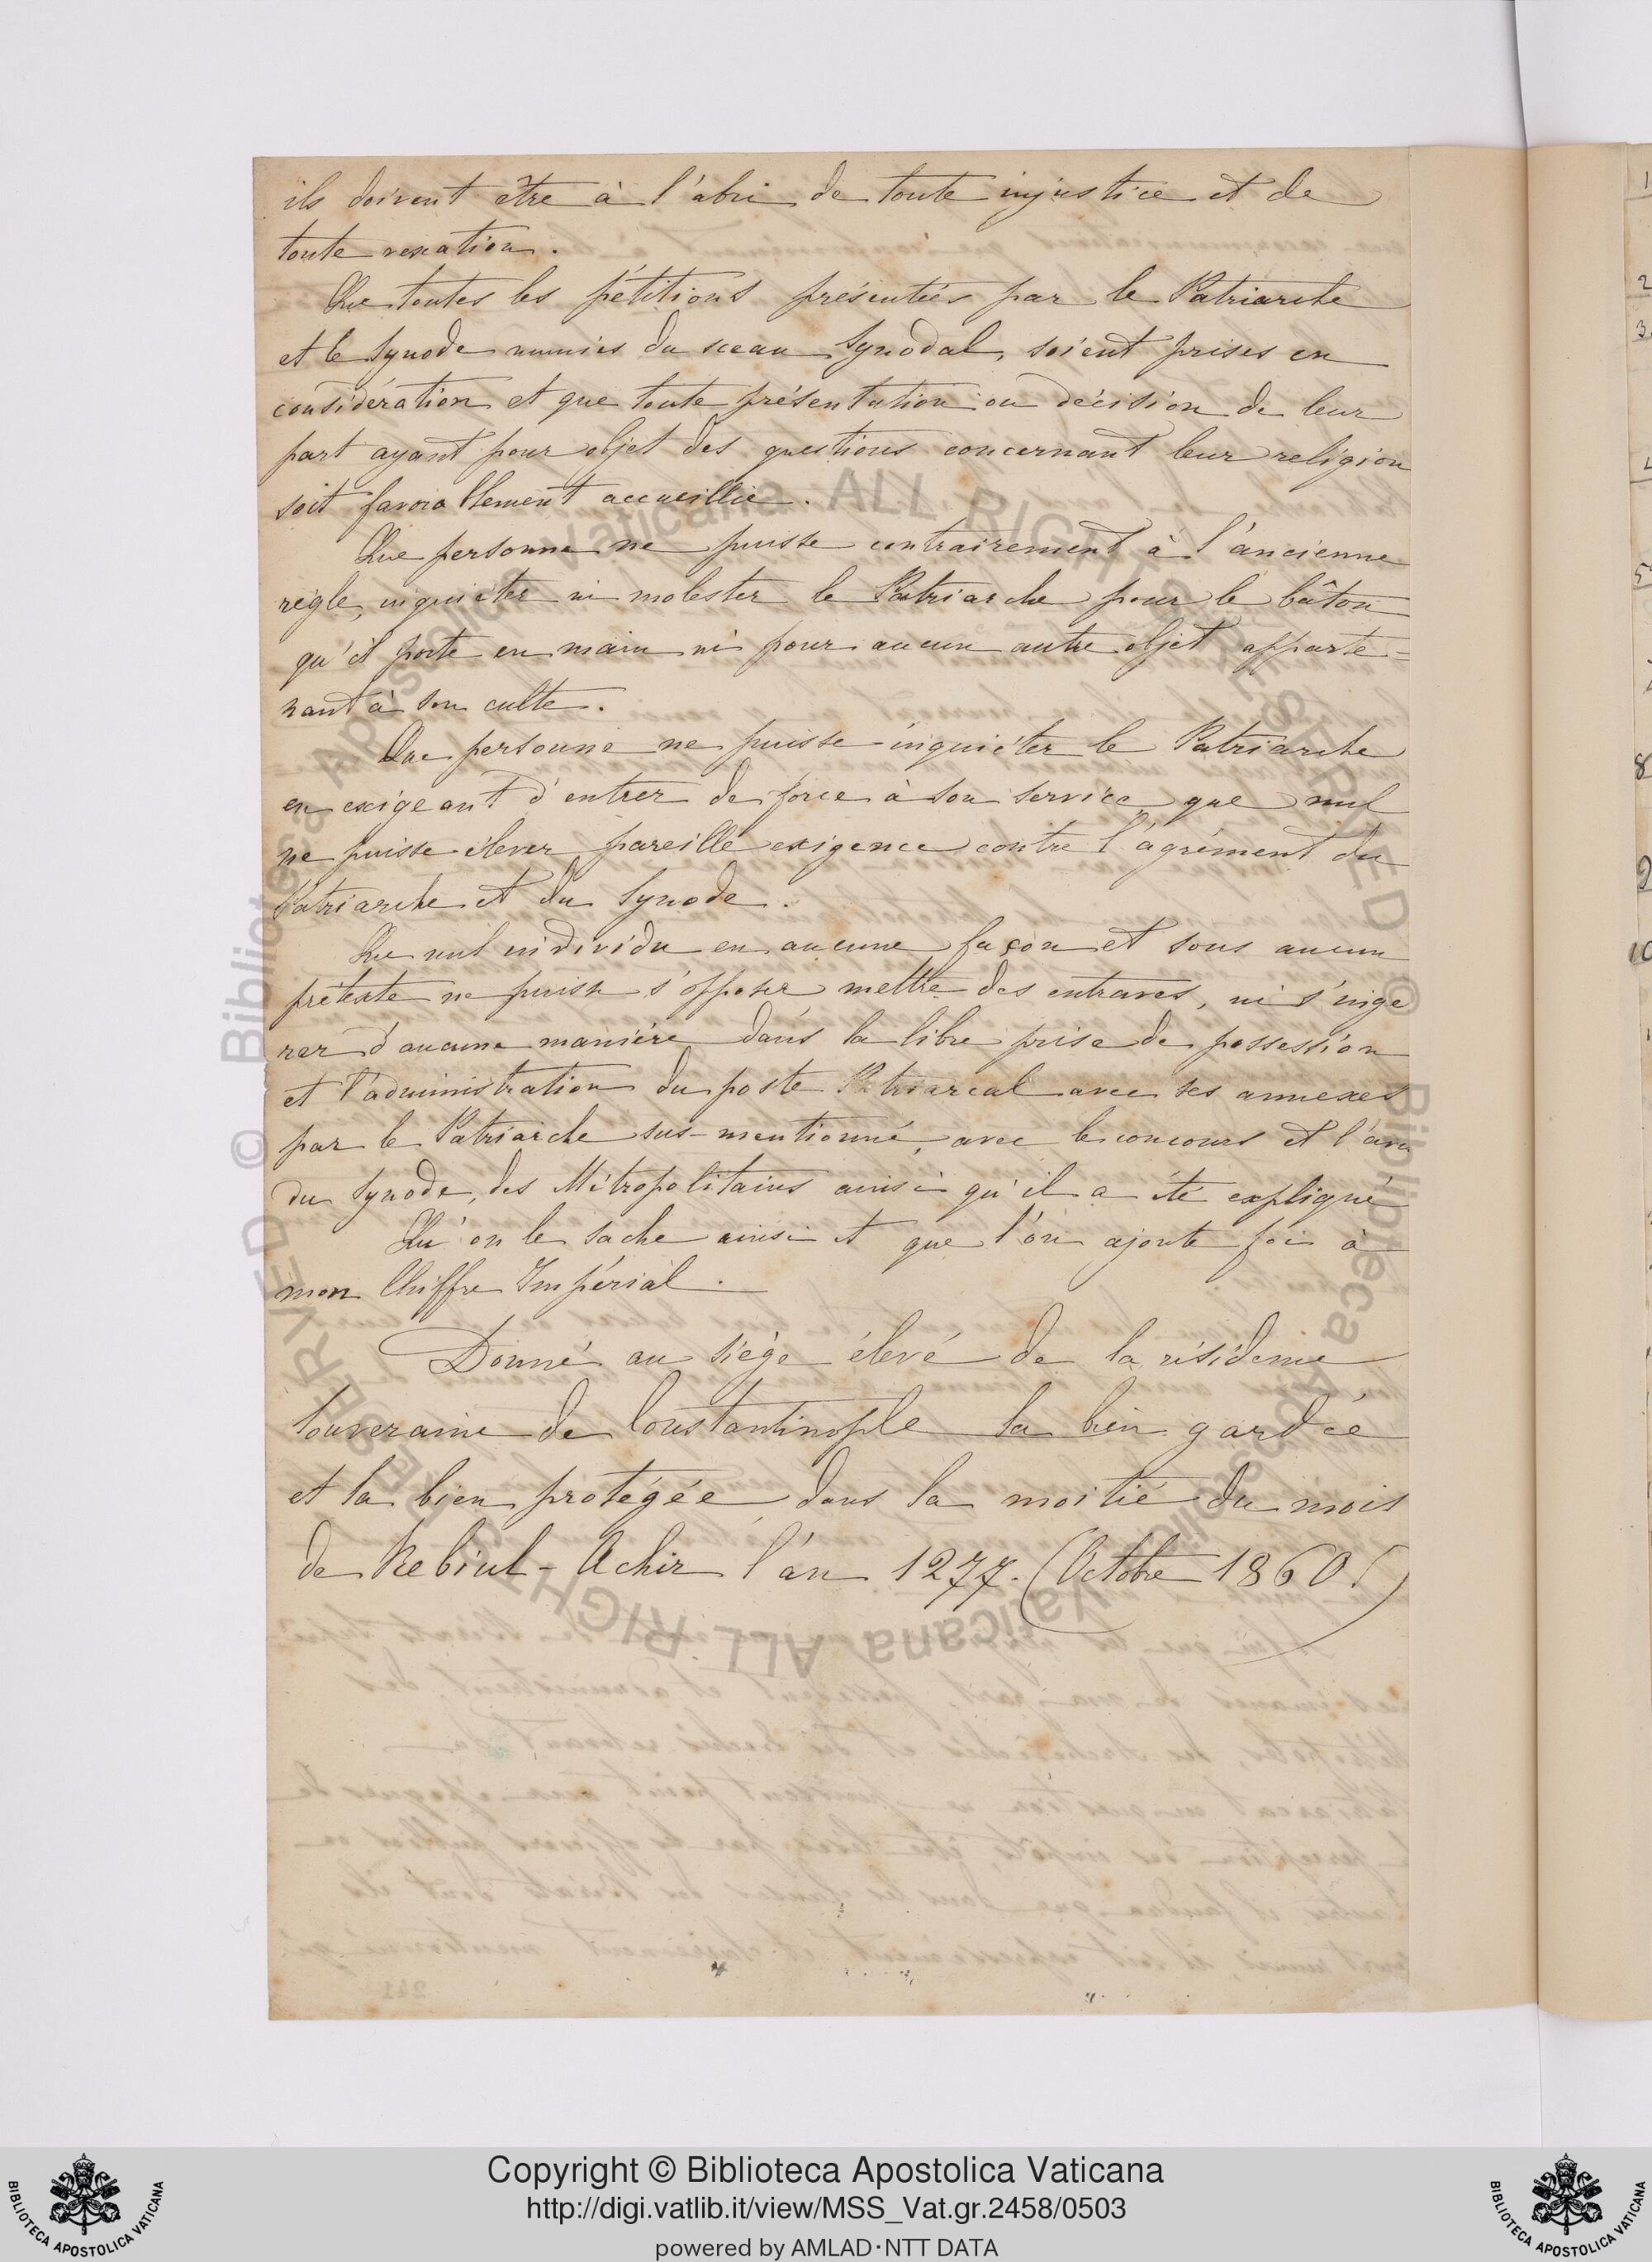 ils doivent être à l'abri de toute injustice et de
toute vexation.
Que toutes les pétitions présentées par le Patriarche
et le Synode munies du sceau Synodal, soient prises en
considération et que toute présentation ou décision de leur
part ayant pour objet des questions concernant leur religion
soit favorablement accueillie.
Que personne ne puisse contrairement à l'ancienne
règle, inquieter ni molester le Patriarche pour le bâton
qu'il porte en main ni pour aucun autre objet apparte=
nant à son culte.
Que personne ne puisse inquiéter le Patriarche
en exigeant d'entrer de force à son service que nul
ne puisse élever pareille exigence contre l'agrément du
Patriarche et du Synode.
Que nul individu en aucune façon et sous aucun
prétexte ne puisse s'opposer mettre des entraves, ni s'inge
rer d'aucune manière dans la libre prise de possession
et l'administration du poste Patriarcal avec ses annexes
par le Patriarche sus-mentionné, avec le concours et l'avis
du Synode, des Métropolitains ainsi qu'il a été expliqué
Qu'on le sache ainsi et que l'on ajoute foi à
mon Chiffre Impérial.
Donné au siège élevé de la résidence
Souveraine de Constantinople la bien gardée
et la bien protégée, dans la moitié du mois
de Rebiul-Achir l'an 1277. (Octobre 1860.)
1
2
3.
4
5
8
9
10
241
© Biblioteca Apostolica Vaticana ALL RIGHTS RESERVED
© Biblioteca Apostolica Vaticana ALL RIGHTS RESERVED
Copyright © Biblioteca Apostolica Vaticana
http://digi.vatlib.it/view/MSS_Vat.gr.2458/0503
powered by AMLAD·NTT DATA
BIBLIOTECA APOSTOLICA VATICANA
BIBLIOTECA APOSTOLICA VATICANA